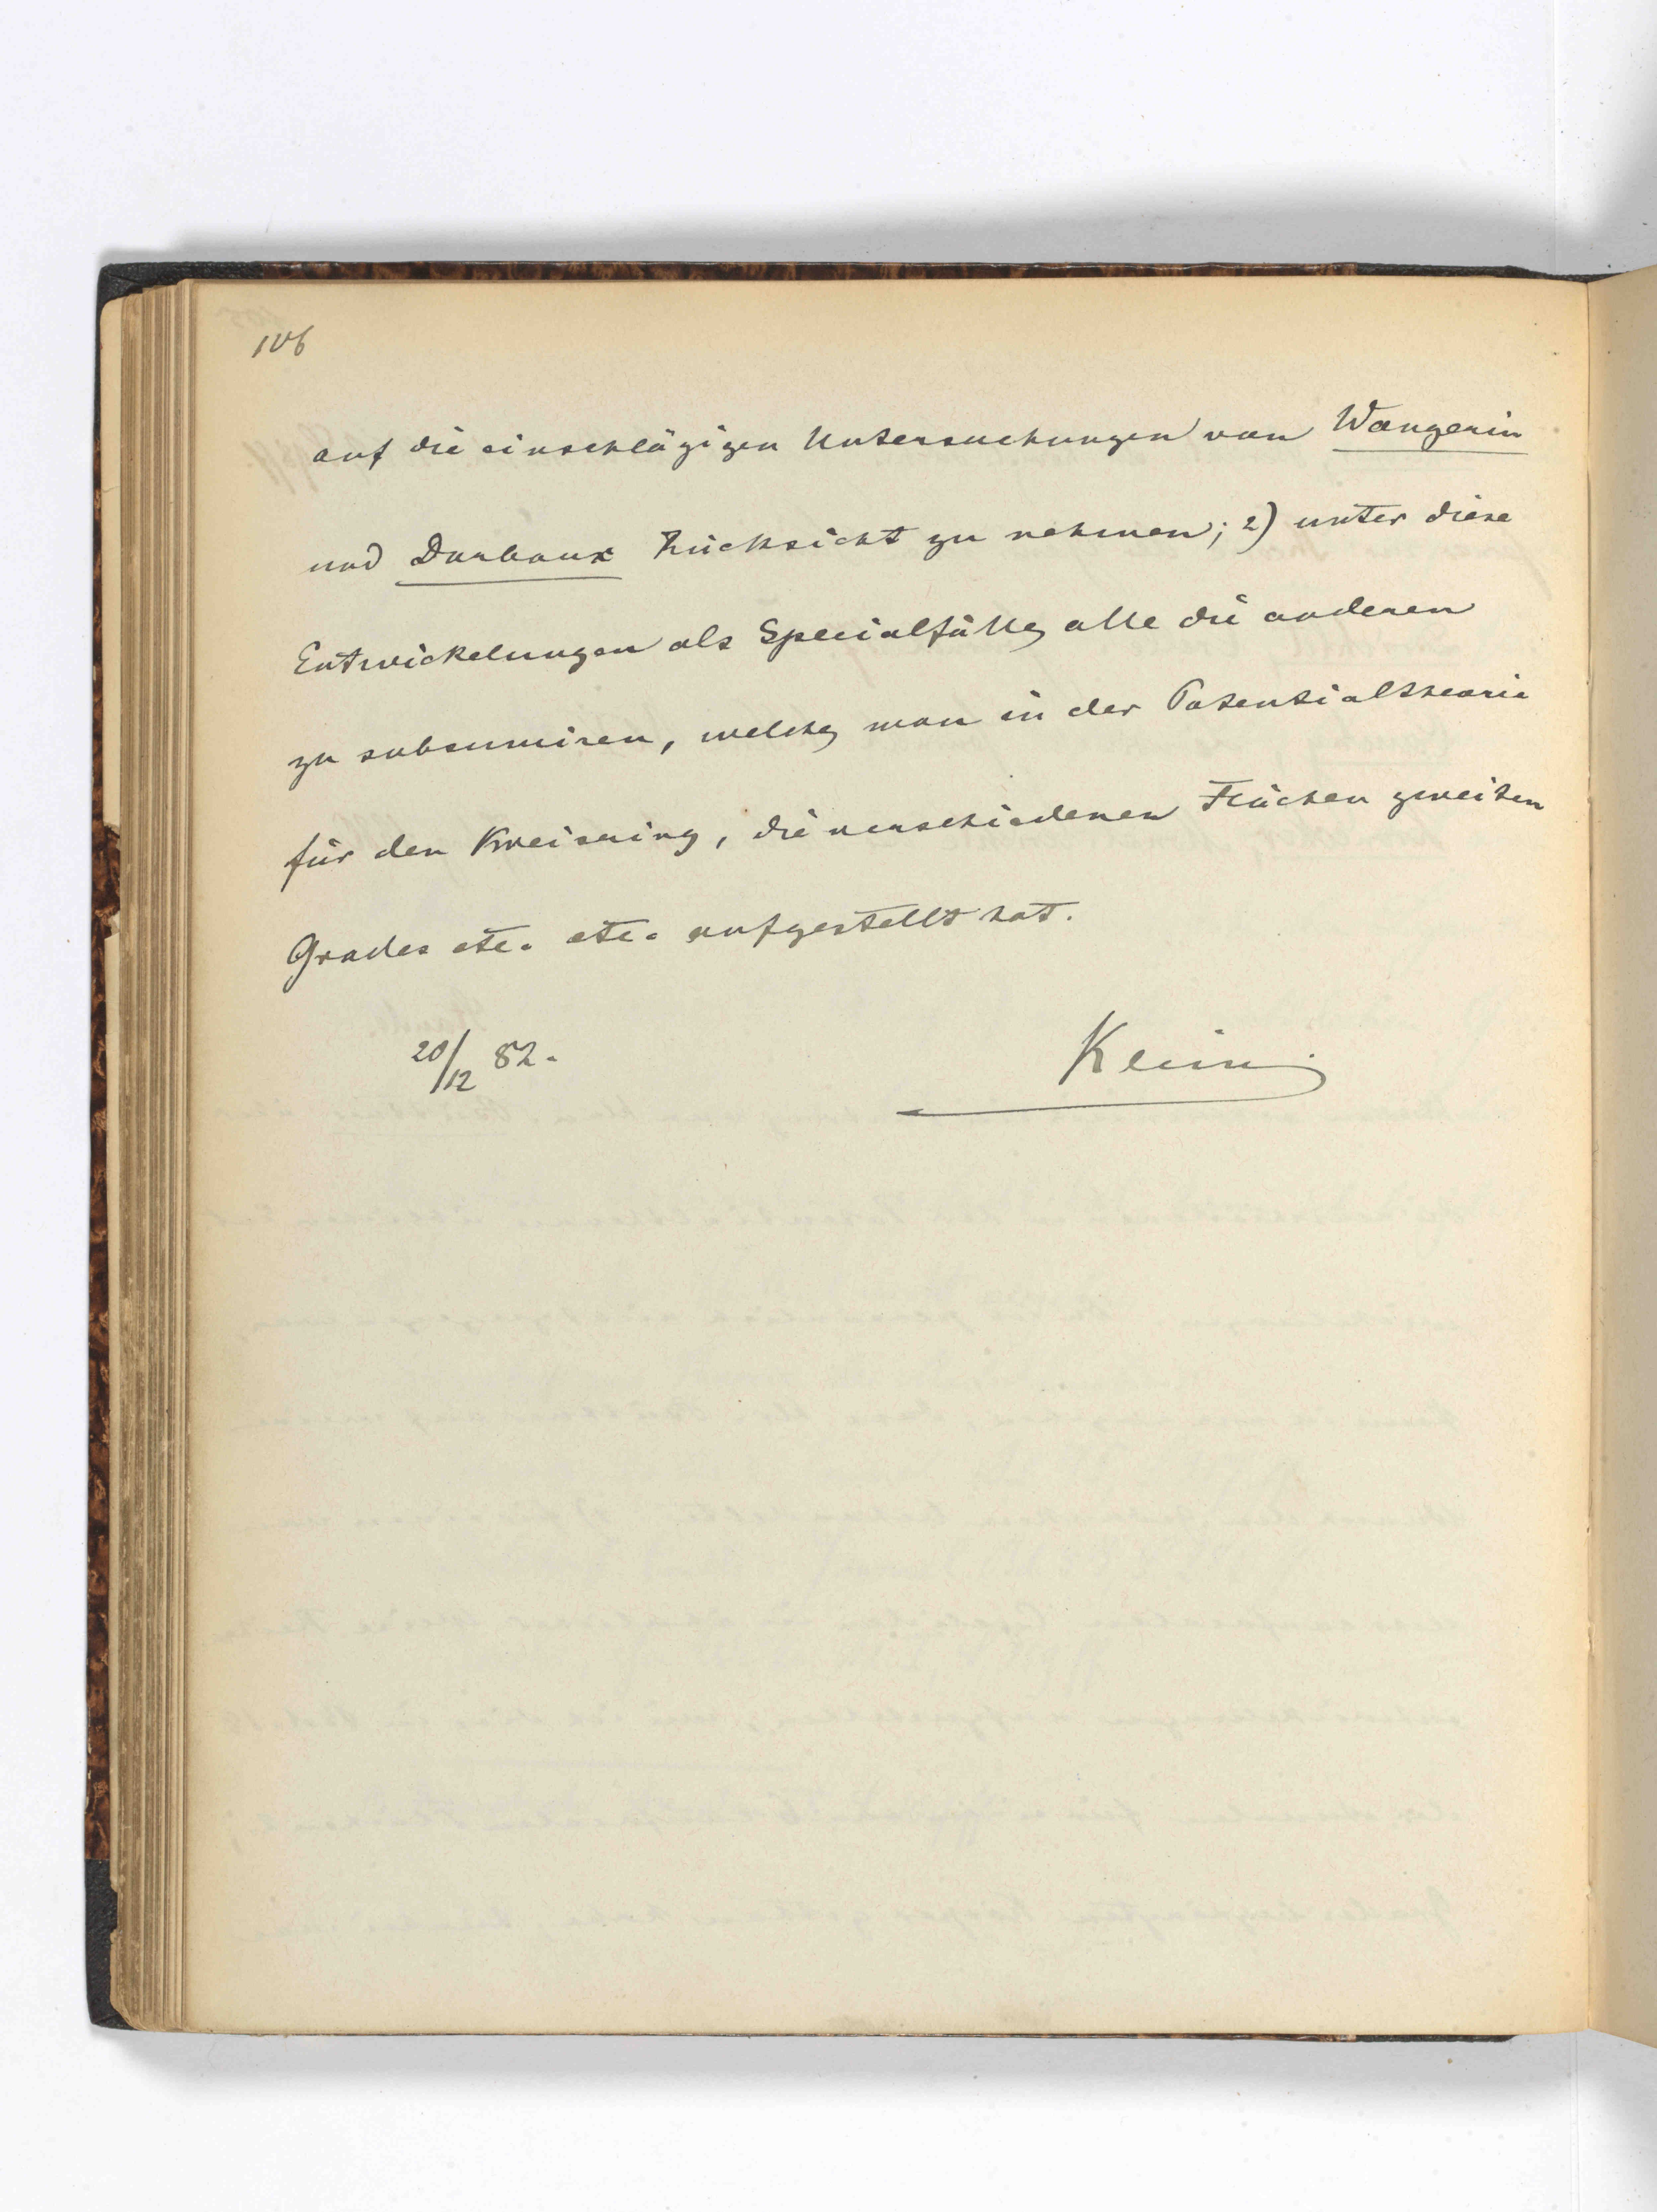 106
auf die einschlägigen Untersuchungen von Wangerin
und Darboux Rücksicht zu nehmen; 2) unter diese
Entwickelungen als Specialfälle alle die anderen
zu subsumiren, welche man in der Potentialtheorie
für den Kreisring, die verschiedenen Flächen zweiten
Grades etc. etc. aufgestellt hat.
20/12 82.
Klein